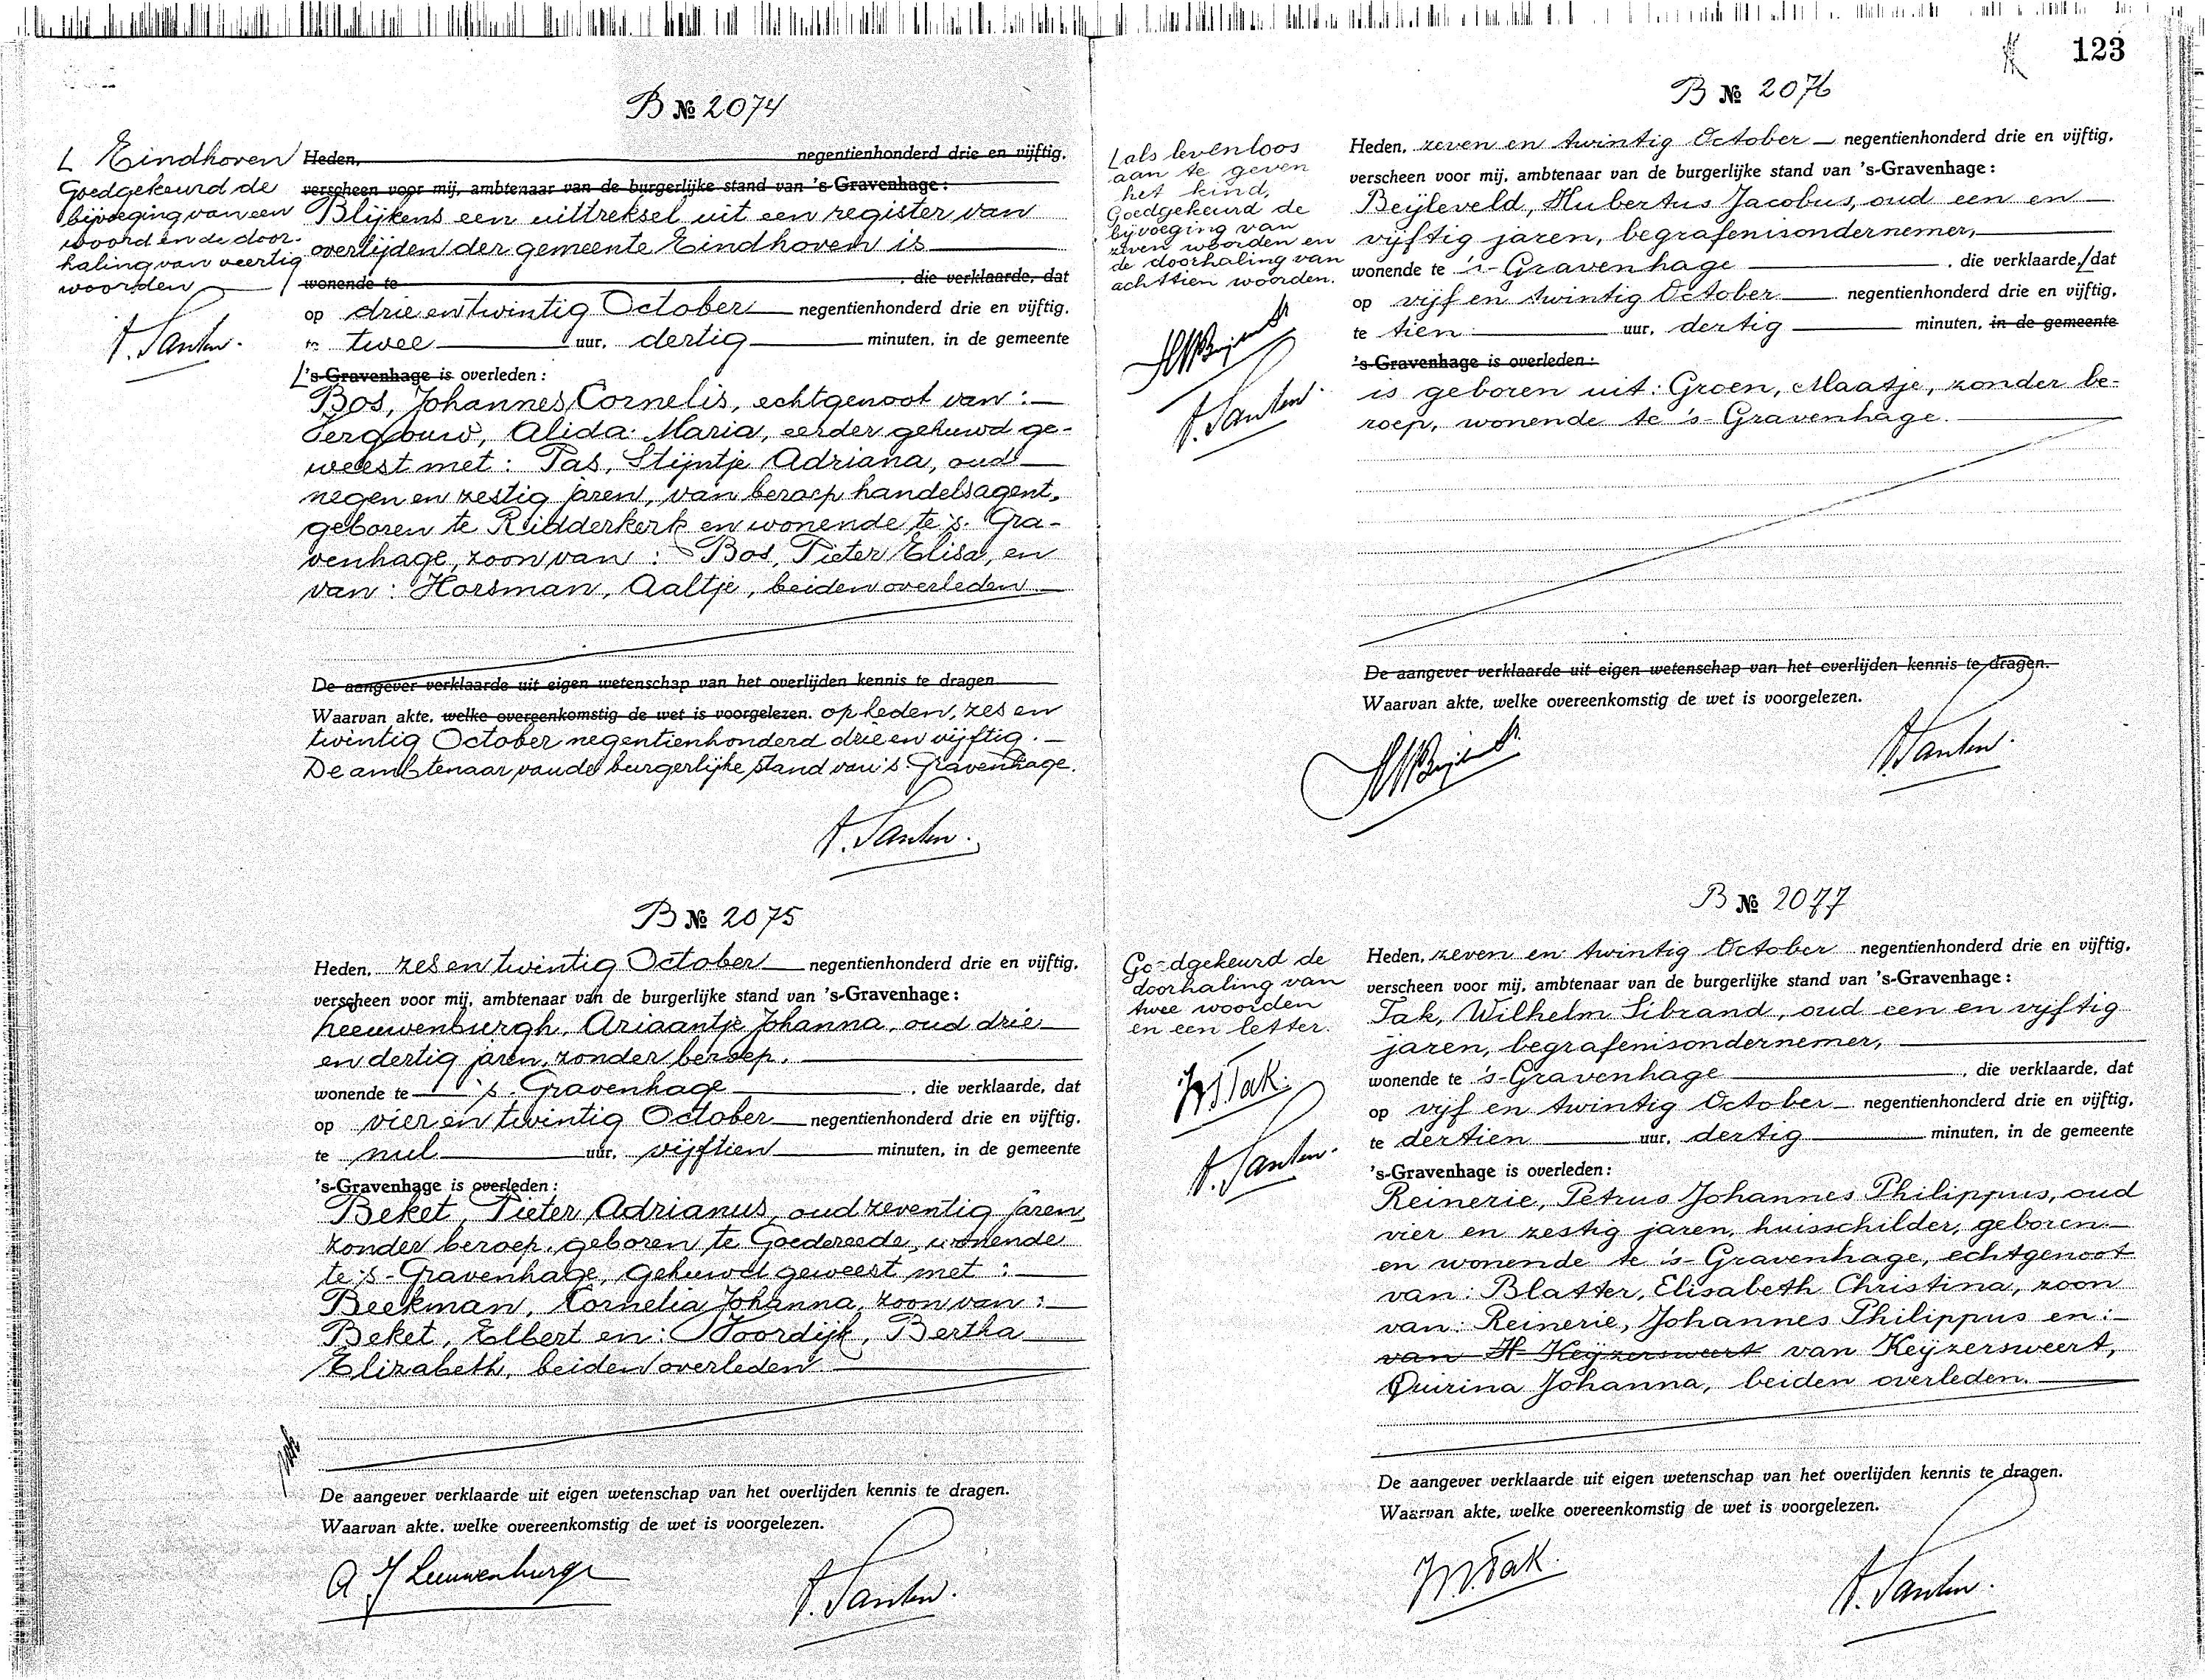 123
B № 2074
L Eindhoven
Goedgekeurd de
bijvoeging van een
woord en de door-
haling van veertig
woorden
Heden, negentienhonderd drie en vijftig,
verscheen voor mij, ambtenaar van de burgerlijke stand van 's-Gravenhage:
Blijkens een uittreksel uit een register van
overlijden der gemeente Eindhoven is
wonende te , die verklaarde, dat
op drie en twintig October negentienhonderd drie en vijftig,
te twee uur, dertig minuten, in de gemeente
L's-Gravenhage is overleden:
Bos, Johannes Cornelis, echtgenoot van:
Vergouw, Alida Maria, eerder gehuwd ge-
weest met: Pas, Stijntje Adriana, oud
negen en zestig jaren, van beroep handelsagent,
geboren te Ridderkerk en wonende te 's-Gra-
venhage, zoon van: Bos, Pieter Elisa, en
van: Horsman, Aaltje, beiden overleden
De aangever verklaarde uit eigen wetenschap van het overlijden kennis te dragen.
Waarvan akte, welke overeenkomstig de wet is voorgelezen. op heden, zes en
twintig October negentienhonderd drie en vijftig.
De ambtenaar van de burgerlijke stand van 's-Gravenhage.
B № 2075
Heden, zes en twintig October negentienhonderd drie en vijftig,
verscheen voor mij, ambtenaar van de burgerlijke stand van 's-Gravenhage:
Leeuwenburgh, Ariaantje Johanna, oud drie
en dertig jaren, zonder beroep,
wonende te 's-Gravenhage, die verklaarde, dat
op vier en twintig October negentienhonderd drie en vijftig,
te nul uur, vijftien minuten, in de gemeente
's-Gravenhage is overleden:
Beket, Pieter Adrianus, oud zeventig jaren,
zonder beroep, geboren te Goedereede, wonende
te 's-Gravenhage, gehuwd geweest met:
Beekman, Cornelia Johanna, zoon van:
Beket, Elbert en: Noordijk, Bertha
Elizabeth, beiden overleden
De aangever verklaarde uit eigen wetenschap van het overlijden kennis te dragen.
Waarvan akte, welke overeenkomstig de wet is voorgelezen.
A J Leeuwenburgh
B № 2076
L als levenloos
aan te geven
het kind,
Goedgekeurd de
bijvoeging van
zeven woorden en
de doorhaling van
achttien woorden.
Heden, zeven en twintig October negentienhonderd drie en vijftig,
verscheen voor mij, ambtenaar van de burgerlijke stand van 's-Gravenhage:
Beijleveld, Hubertus Jacobus, oud een en
vijftig jaren, begrafenisondernemer,
wonende te 's-Gravenhage, die verklaarde, L dat
op vijf en twintig October negentienhonderd drie en vijftig,
te tien uur, dertig minuten, in de gemeente
's-Gravenhage is overleden:
is geboren uit: Groen, Maatje, zonder be-
roep, wonende te 's-Gravenhage.
De aangever verklaarde uit eigen wetenschap van het overlijden kennis te dragen.
Waarvan akte, welke overeenkomstig de wet is voorgelezen.
B № 2077
Goedgekeurd de
doorhaling van
twee woorden
en een letter.
W.S. Tak.
Heden, zeven en twintig October negentienhonderd drie en vijftig,
verscheen voor mij, ambtenaar van de burgerlijke stand van 's-Gravenhage:
Tak, Wilhelm Sibrand, oud een en vijftig
jaren, begrafenisondernemer,
wonende te 's-Gravenhage, die verklaarde, dat
op vijf en twintig October negentienhonderd drie en vijftig,
te dertien uur, dertig minuten, in de gemeente
's-Gravenhage is overleden:
Reinerie, Petrus Johannes Philippus, oud
vier en zestig jaren, huisschilder, geboren
en wonende te 's-Gravenhage, echtgenoot
van: Blatter, Elisabeth Christina, zoon
van: Reinerie, Johannes Philippus en:
van H Keijzersweert van Keijzersweert,
Quirina Johanna, beiden overleden.
De aangever verklaarde uit eigen wetenschap van het overlijden kennis te dragen.
Waarvan akte, welke overeenkomstig de wet is voorgelezen.
W.S. Tak.